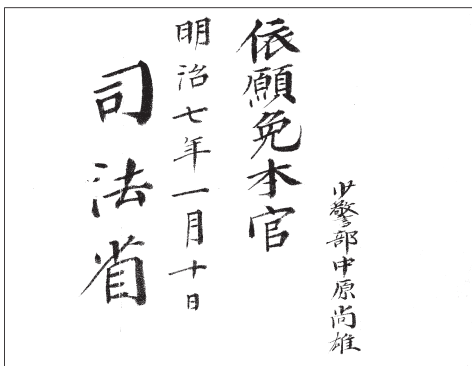 少警部中原尚雄
依願免本官
明治七年一月十日
司法省